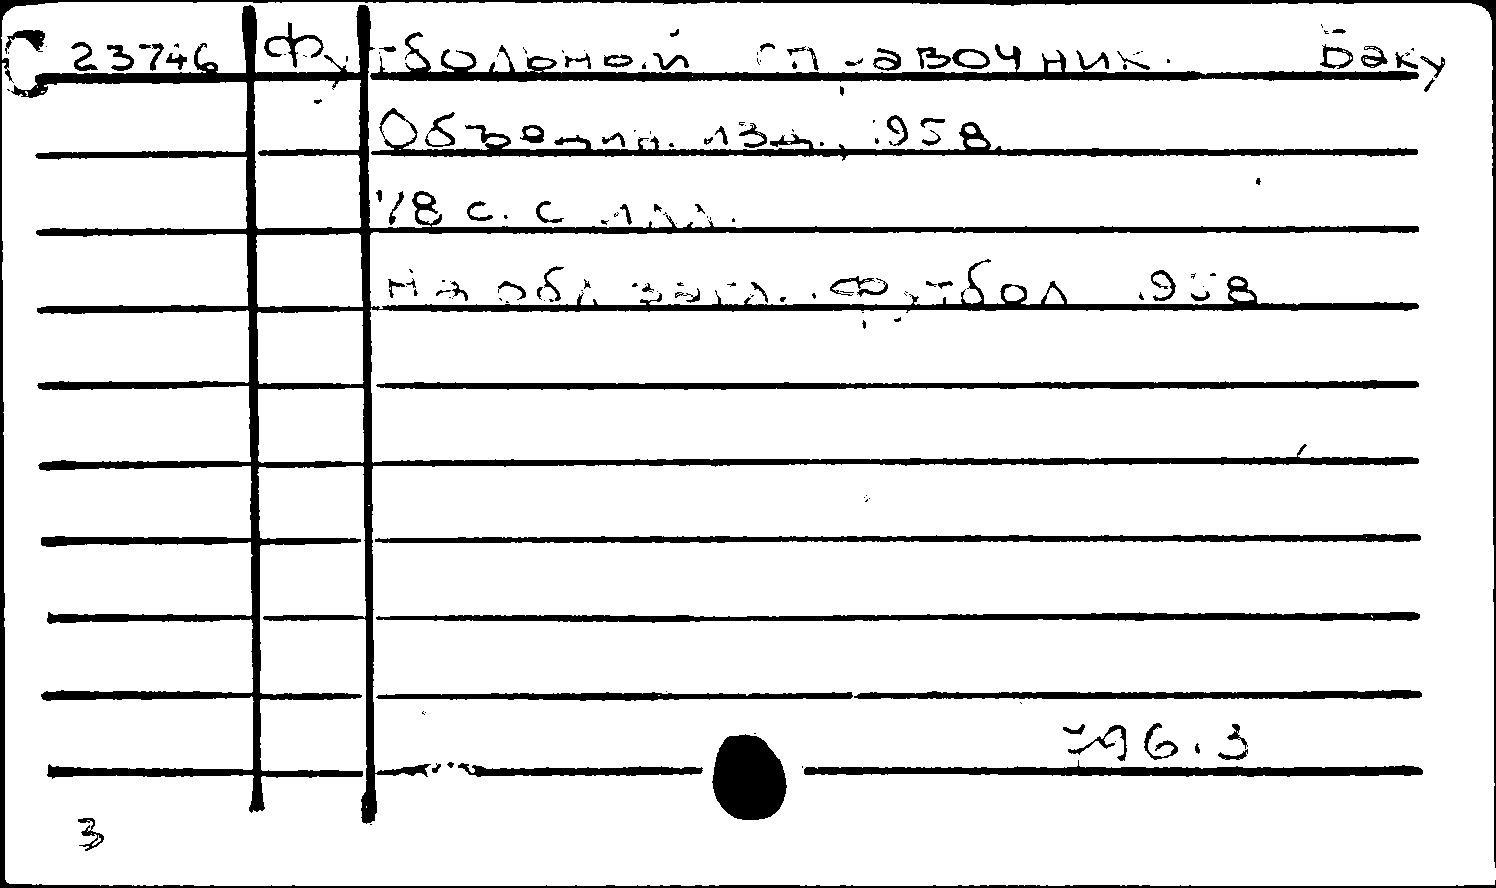 С 23746 Футбольный справочник. Баку
Объедин. изд., 1958.
78 с. с илл.
На обл. загл.: Футбол 1958
796.3
3